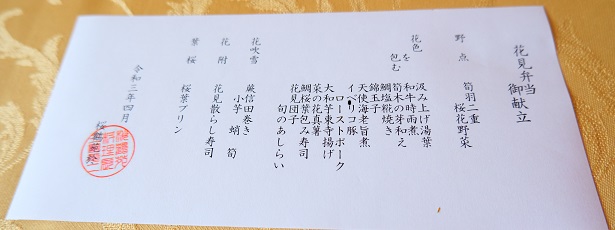 花見弁当
御献立
野点
筍羽二重
桜花野菜
花色を包む
汲み上げ湯葉
和牛時雨煮
筍木の芽和え
鯛塩糀焼き
錦玉子
天使海老旨煮
イベリコ豚
ローストポーク
大和芋東寺揚げ
菜の花真薯
鯛桜葉包み寿司
花見団子
旬のあしらい
花吹雪
蕨信田巻き
小芋 蛸 筍
花附
花見散らし寿司
葉桜
桜葉プリン
令和三年四月